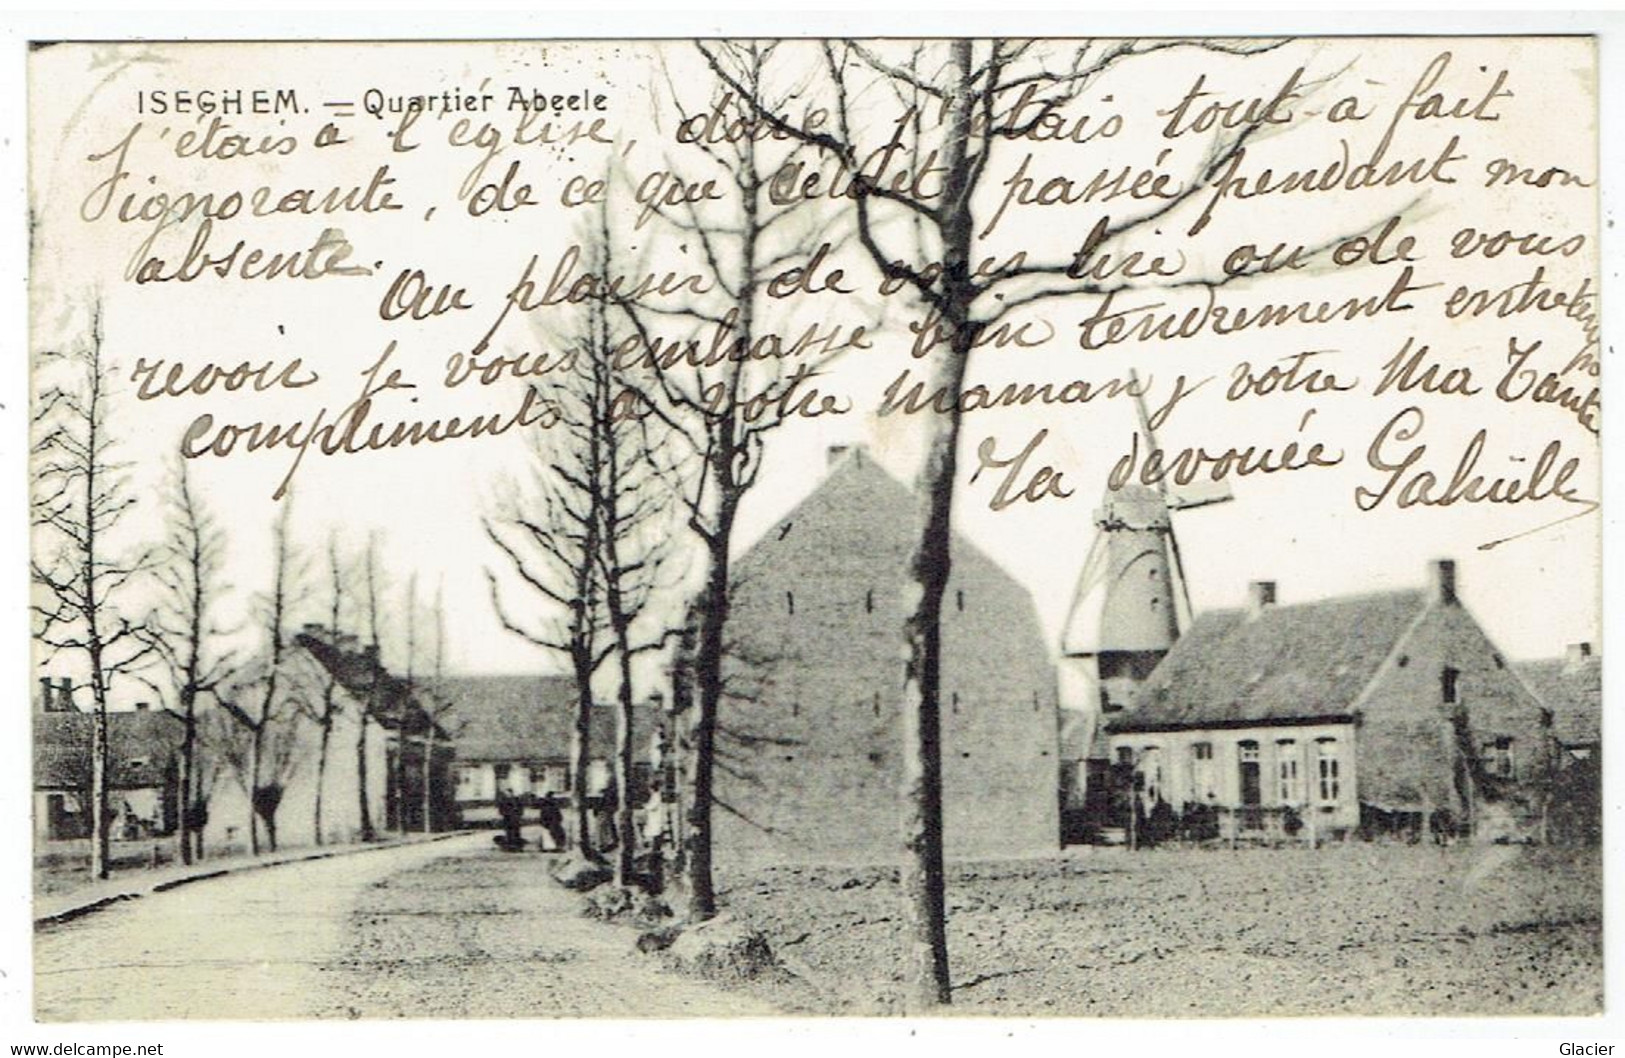 ISEGHEM. — Quartier Abeele
j'étais à l'église, donc j'étais tout-à fait
ignorante, de ce que c'était passée pendant mon
absente.
Au plaisir de vous lire ou de vous
revoir je vous embrasse bien tendrement entretemps
compliments à votre maman, votre Ma Tante
Ta devouée
www.delcampe.net
Glacier